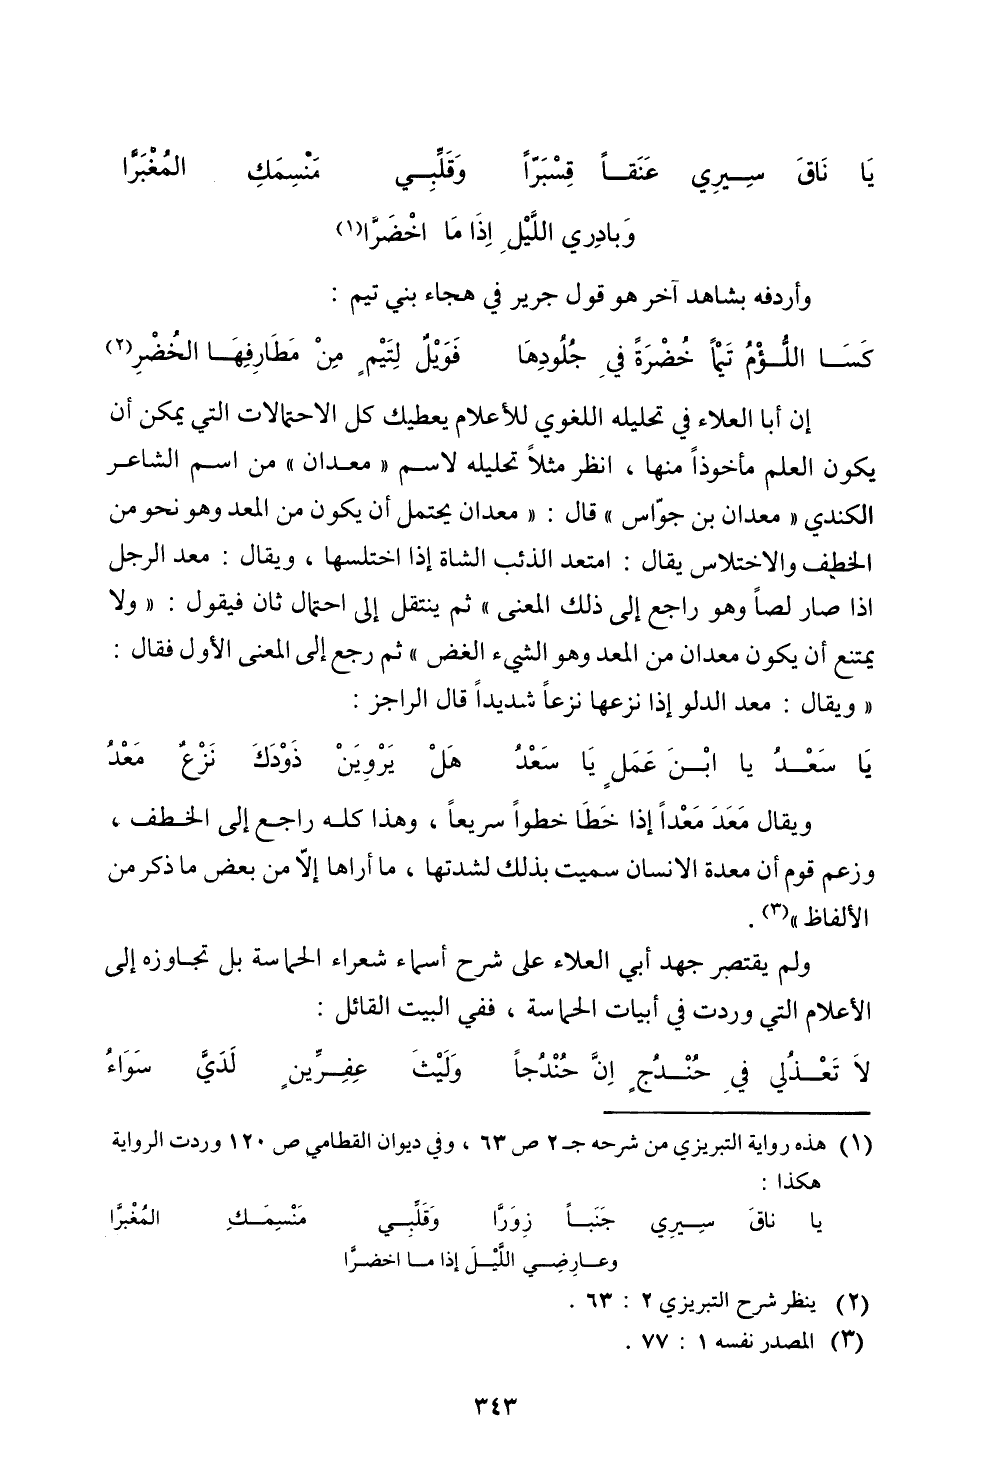 يَا نَاقَ سِيرِي عَنَقاً قِسْبَرّاً وَقَلِّبِي مَنْسِمَكِ المُغْبَرَّا
وَبادِري اللَّيْلِ إِذَا مَا اخْضَرَّا(١)
وأردفه بشاهد آخر هو قول جرير في هجاء بني تيم :
كَسَا اللُّؤْمُ تَيْماً خُضْرَةً فِي جُلُودِهَا فَوَيْلٌ لِتَيْمٍ مِنْ مَطَارِفِهَا الخُضْرِ(٢)
إن أبا العلاء في تحليله اللغوي للأعلام يعطيك كل الاحتمالات التي يمكن أن
يكون العلم مأخوذاً منها ، انظر مثلاً تحليله لاسم « معدان » من اسم الشاعر
الكندي « معدان بن جوّاس » قال : « معدان يحتمل أن يكون من المعد وهو نحو من
الخطف والاختلاس يقال : امتعد الذئب الشاة إذا اختلسها ، ويقال : معد الرجل
اذا صار لصاً وهو راجع إلى ذلك المعنى » ثم ينتقل إلى احتمال ثان فيقول : « ولا
يمتنع أن يكون معدان من المعد وهو الشيء الغض » ثم رجع إلى المعنى الأول فقال :
« ويقال : معد الدلو إذا نزعها نزعاً شديداً قال الراجز :
يَا سَعْدُ يا ابْنَ عَمَلٍ يَا سَعْدُ هَلْ يَرْوِيَنْ ذَوْدَكَ نَزْعٌ مَعْدُ
ويقال مَعَدَ مَعْداً إذا خَطَا خطواً سريعاً ، وهذا كله راجع إلى الخطف ،
وزعم قوم أن معدة الانسان سميت بذلك لشدتها ، ما أراها إلّا من بعض ما ذكر من
الألفاظ »(٣) .
ولم يقتصر جهد أبي العلاء على شرح أسماء شعراء الحماسة بل تجاوزه إلى
الأعلام التي وردت في أبيات الحماسة ، ففي البيت القائل :
لاَ تَعْذُلي فِي حُنْدُجٍ إِنَّ حُنْدُجاً وَلَيْثَ عِفِرِّينٍ لَدَيَّ سَوَاءُ
(١) هذه رواية التبريزي من شرحه جـ٢ ص ٦٣ ، وفي ديوان القطامي ص ١٢٠ وردت الرواية
هكذا :
يا ناقَ سِيرِي جَنَباً زِوَرَّا وَقَلِّبِي مَنْسِمَكِ المُغْبَرَّا
وعارِضِي اللَّيْلَ إذا ما اخضرَّا
(٢) ينظر شرح التبريزي ٢ : ٦٣ .
(٣) المصدر نفسه ١ : ٧٧ .
٣٤٣